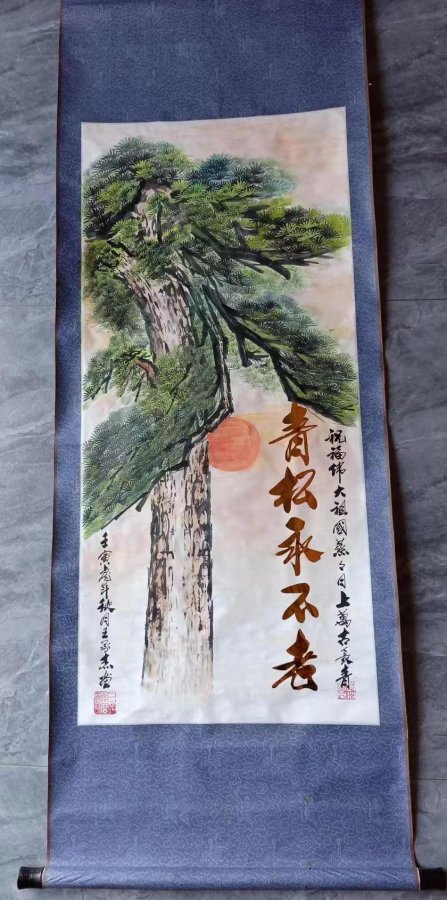 祝福伟大祖國蒸々日上萬古長青
青松永不老
壬寅虎年秋月王承志画